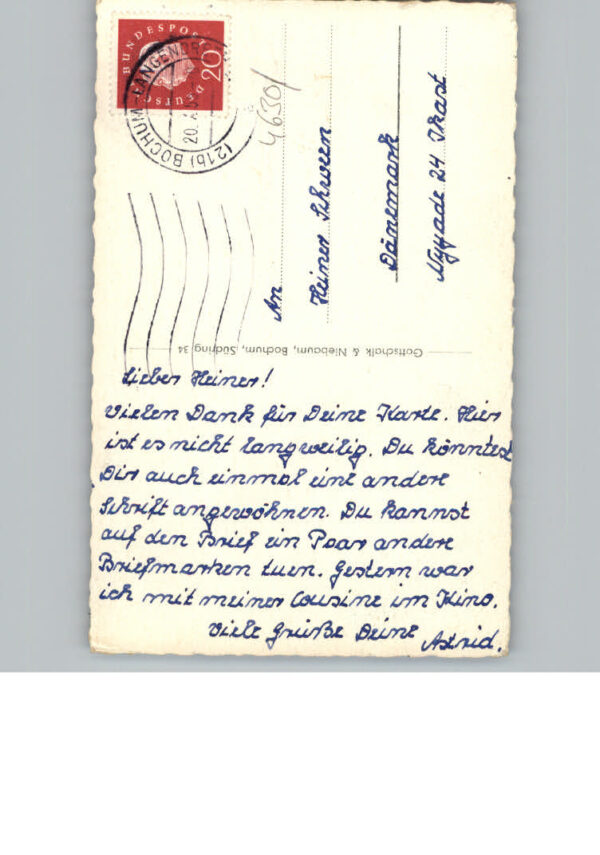 DEUTSCHE BUNDESPOST
20
(21b) BOCHUM-LANGENDREER
20.
4630/
An
Heiner Schween
Dänemark
Nygade 24 Ikast
Gottschalk & Niebaum, Bochum, Südring 34
Lieber Heiner!
Vielen Dank für Deine Karte. Hier
ist es nicht langweilig. Du könntest
Dir auch einmal eine andere
Schrift angewöhnen. Du kannst
auf den Brief ein Paar andere
Briefmarken tuen. Gestern war
ich mit meiner Cousine im Kino.
Viele Grüße Deine
Astrid.